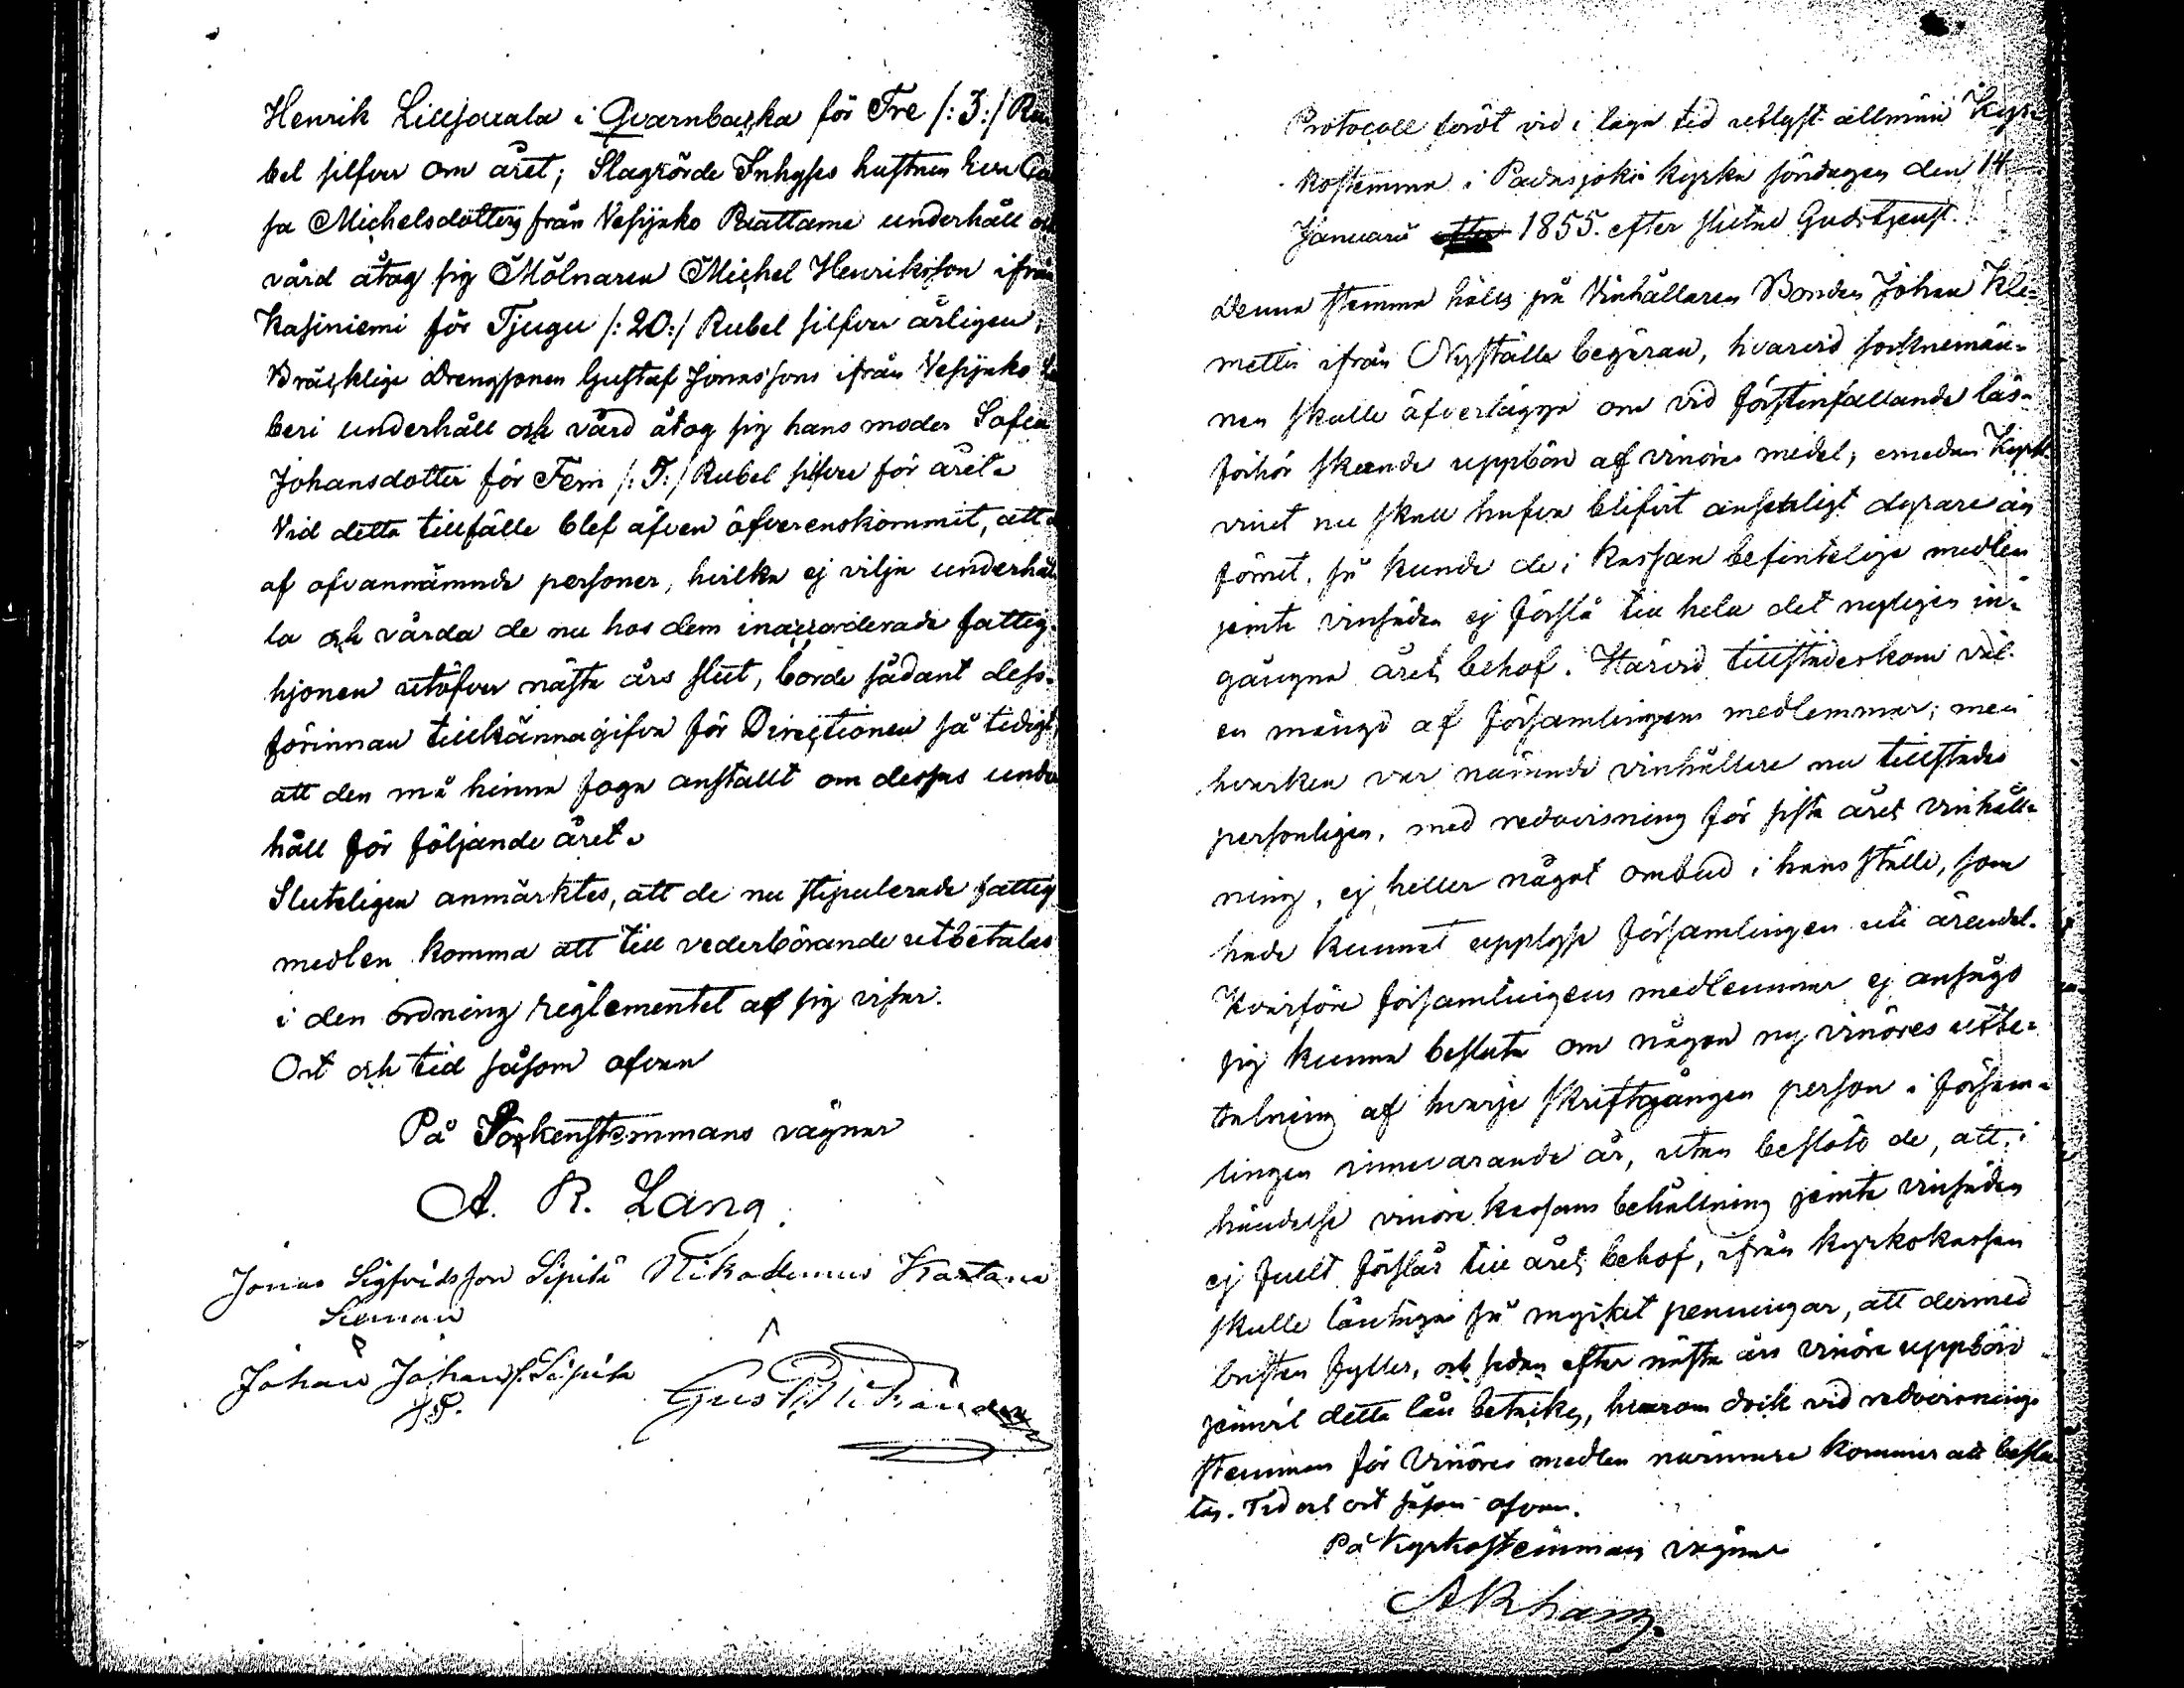 Henrik Lilljaakala i Qvarnbacka för Tre /: 3:/ Ru
bel silfver om året; Slagrörde Inhyses hustrun
sa Michelsdotters från Vesijako Rauttama underhåll och
vård åtog sig Mölnaren Michel Henriksson ifrån
Kasiniemi för Tjugu /: 20:/ Rubel silfver årligen;
Bräcklige Drengsonen Gustaf Jonassons ifrån Vesijako
beri underhåll och vård åtog sig hans moder Sofia
Johansdotter för Fem /: 5:/ Rubel silfver för året.
Vid detta tillfälle blef äfven öfverenskommit, att
af ofvannämnde personer, hvilka ej vilja underhål
la och vårda de nu hos dem inaccorderade fattig-
hjonen utöfver nästa års slut, borde sådant dess-
förinnan tillkännagifva för Directionen så tidigt,
att den må hinna foga anstallt om dessas under
håll för följande året.
Sluteligen anmärktes, att de nu stipulerade fattig
medlen komma att till vederbörande utbetalas
i den ordning reglementet af sig visar.
Ort och tid såsom ofvan
På Sockenstemmans vägnar
A. R. Lang.
Jonas Sigfridsson Sipilä Nikodemus Kartano
Johan Johansf. Sipilä
Protocoll fördt vid i laga tid utlyst allmän Kyr-
kostemma i Padasjoki kyrka söndagen den 14
Januarii 1855. efter slutad Gudstjenst.
Denna stemma hålls på Vinhållaren Bonden Johan Kle-
mettis ifrån Nyystölä begäran, hvarvid socknemän-
nen skulle öfverlägga om vid förstinfallande läs-
förhör skeende uppbörd af vinöres medel; emedan Kyrk-
vinet nu skall hafva blifvit ansenligt dyrare än
förut, så kunde de i kassan befintelige medlen
jemte vinsäden ej förslå till hela det nyligen in-
gångna årets behof. Härvid tillstädeskom väl
en mängd af församlingens medlemmar; men
hvarken var nämnde vinhållare nu tillstädes
personligen, med redovisning för sista året vinhåll-
ning, ej heller något ombud i hans ställe, som
hade kunnat upplysa församlingen uti ärendet.
Hvarföre församlingens medlemmar ej ansågo
sig kunna besluta om någon ny vinöres utbe-
talning af hvarje skriftgången person i försam-
lingen innevarande år, utan beslöto de, att i
händelse vinöre kassans behållning jemte vinsäden
ej fullt förslår till årets behof, ifrån kyrkokassan
skulle låntagas så mycket penningar, att dermed
bristen fylles, och sedan efter nästa års vinöre uppbörd
jemväl detta lån betalas, hvarom dock vid redovisnings
stemman för Vinöres medlen närmare kommer att beslu
tas. Tid och ort såsom ofvan.
På Kyrkostemmans vägnar
A R Lang.